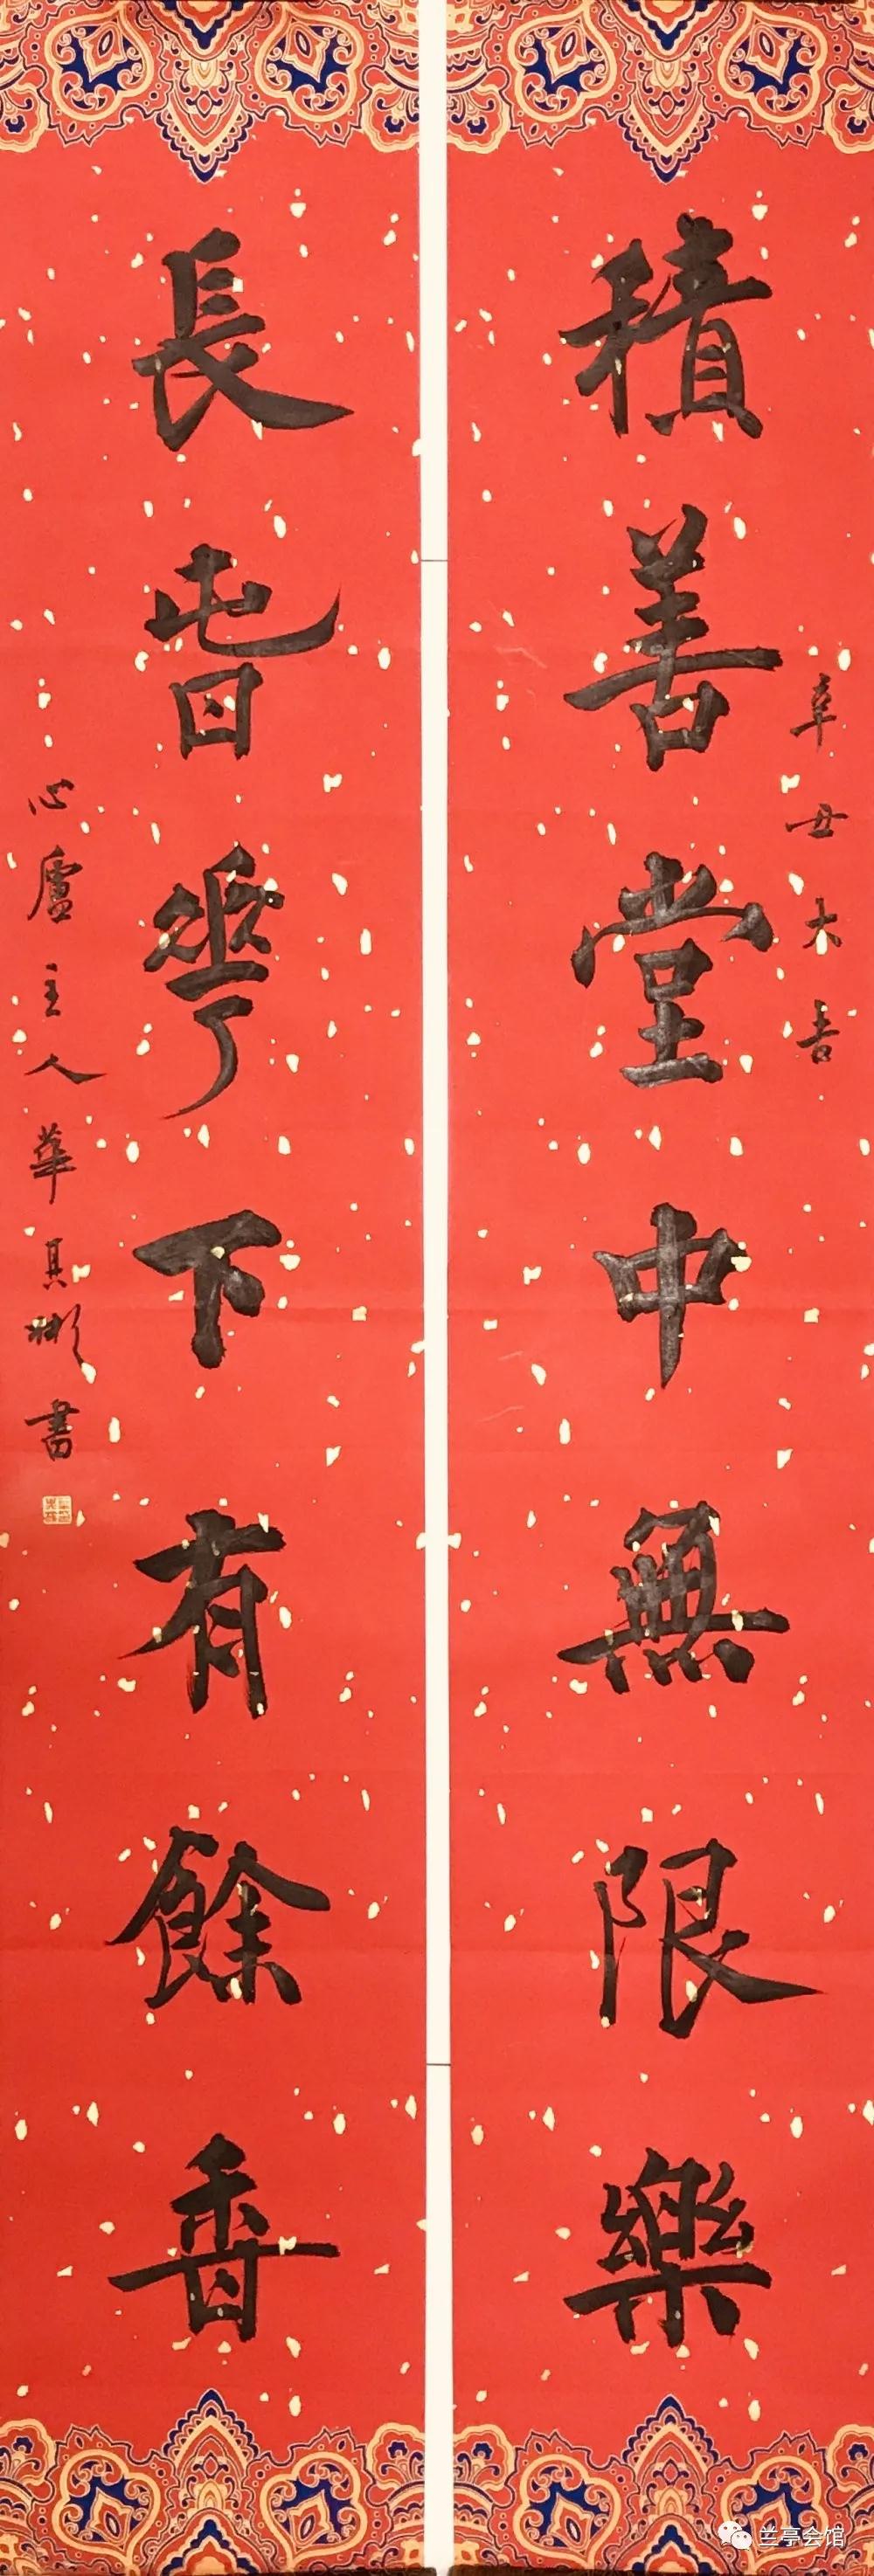 辛丑大吉
積善堂中無限樂
長旾花下有餘香
心廬主人華其彬書
兰亭会馆